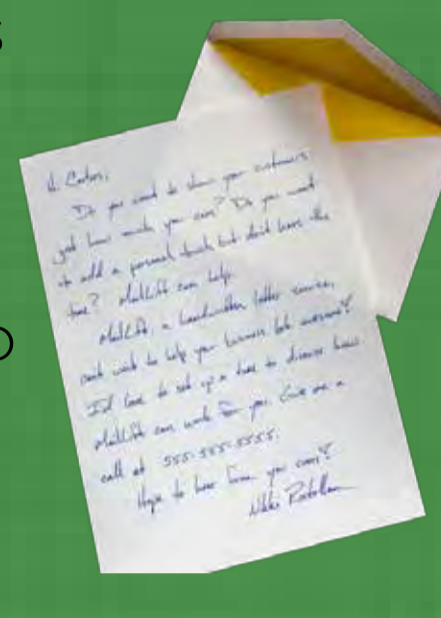 S
O
Hi Carlos,
Do you want to show your customers
just how much you care? Do you want
to add a personal touch but don't have the
time? MailLift can help.
MailLift, a handwritten letter service,
can't wait to help your business look awesome!
I'd love to set up a time to discuss how
MailLift can work for you. Give me a
call at 555-555-5555.
Hope to hear from you soon!